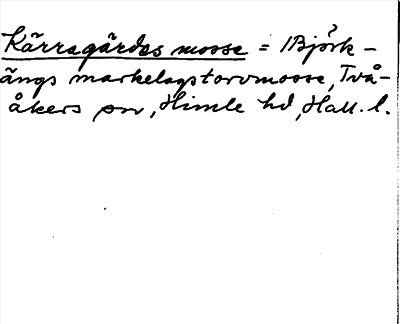 Kärragärdes mosse = Björk-
ängs markelagstorvmosse, Två-
åkers sn, Himle hd, Hall. l.